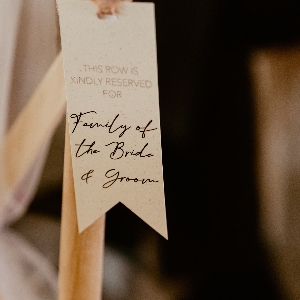 THIS ROW IS
KINDLY RESERVED
FOR
Family of
the Bride
& Groom